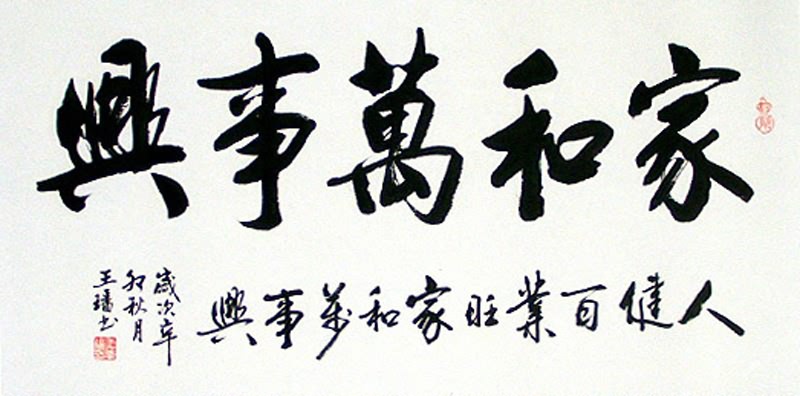 家和萬事興
人健百業旺家和萬事興
歲次辛
卯秋月
王璠书